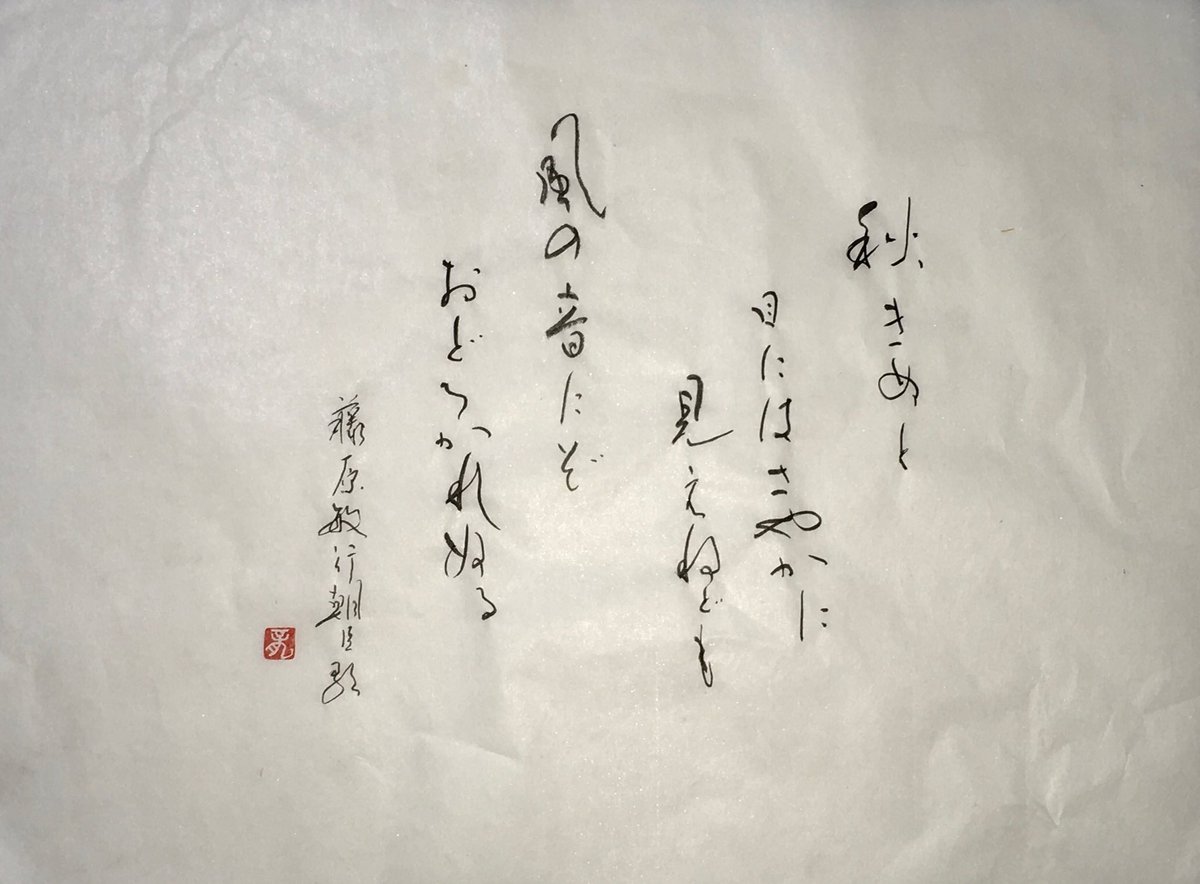 秋きぬと
目にはさやかに
見えねども
風の音にぞ
おどろかれぬる
藤原敏行朝臣歌